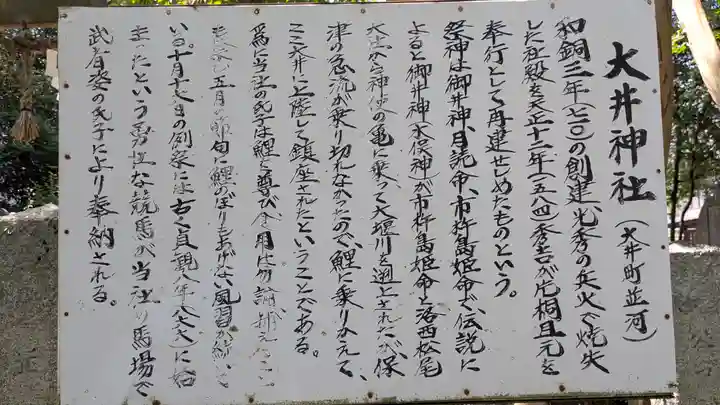 大井神社（大井町並河）
和銅三年（七一〇）の創建、光秀の兵火で焼失
した社殿を天正十二年（一五八四）秀吉が片桐且元を
奉行として再建せしめたものという。
祭神は御井神、月読命、市杵島姫命で、伝説に
よると御井神（木俣神）が市杵島姫命と洛西松尾
大社から神使の亀に乗って大堰川を遡上されたが、保
津の急流が乗り切れなかったので、鯉に乗りかえて、
ここ大井に上陸して鎮座されたということである。
為に当社の氏子は鯉を尊び食用は勿論、捕え
五月の節句に鯉のぼりもあげない風習が続いて
いる。十月十七日の例祭には古く貞観八年（八六六）に始
まったという勇壮な競馬が当社の馬場で
武者姿の氏子により奉納される。